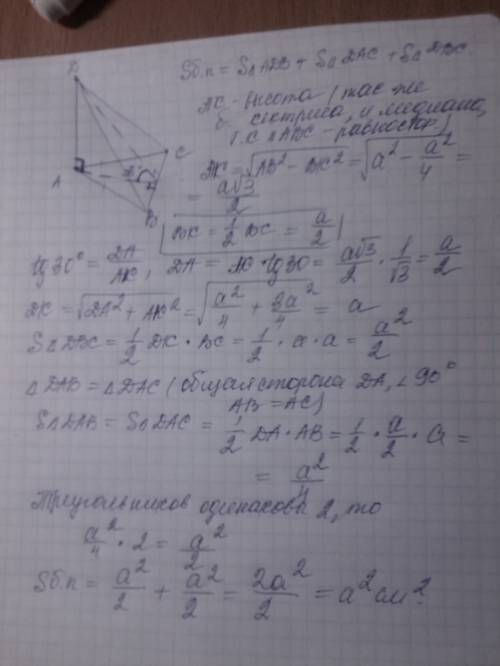 Sб.п = S△ADB + S△DAC + S△DBC.
D
АК - высота (так же
б. сектриса, и медиана,
т.с △ABC - равностор)
C
A
B
АК = √AB² - BK² = √a² - a²/4 =
= a√3/2
BK = 1/2 BC = a/2
tg30° = DA/AK, DA = AK · tg30 = a√3/2 · 1/√3 = a/2
DK = √DA² + AK² = √a²/4 + 3a²/4 = a
S△DBC = 1/2 DK · BC = 1/2 · a · a = a²/2
△DAB = △DAC (общая сторона DA, ∠90°
AB = AC)
S△DAB = S△DAC = 1/2 DA · AB = 1/2 · a/2 · a =
= a²/4
Триугольников одинакова 2, то
a²/4 · 2 = a²/2
Sб.п = a²/2 + a²/2 = 2a²/2 = a² см².